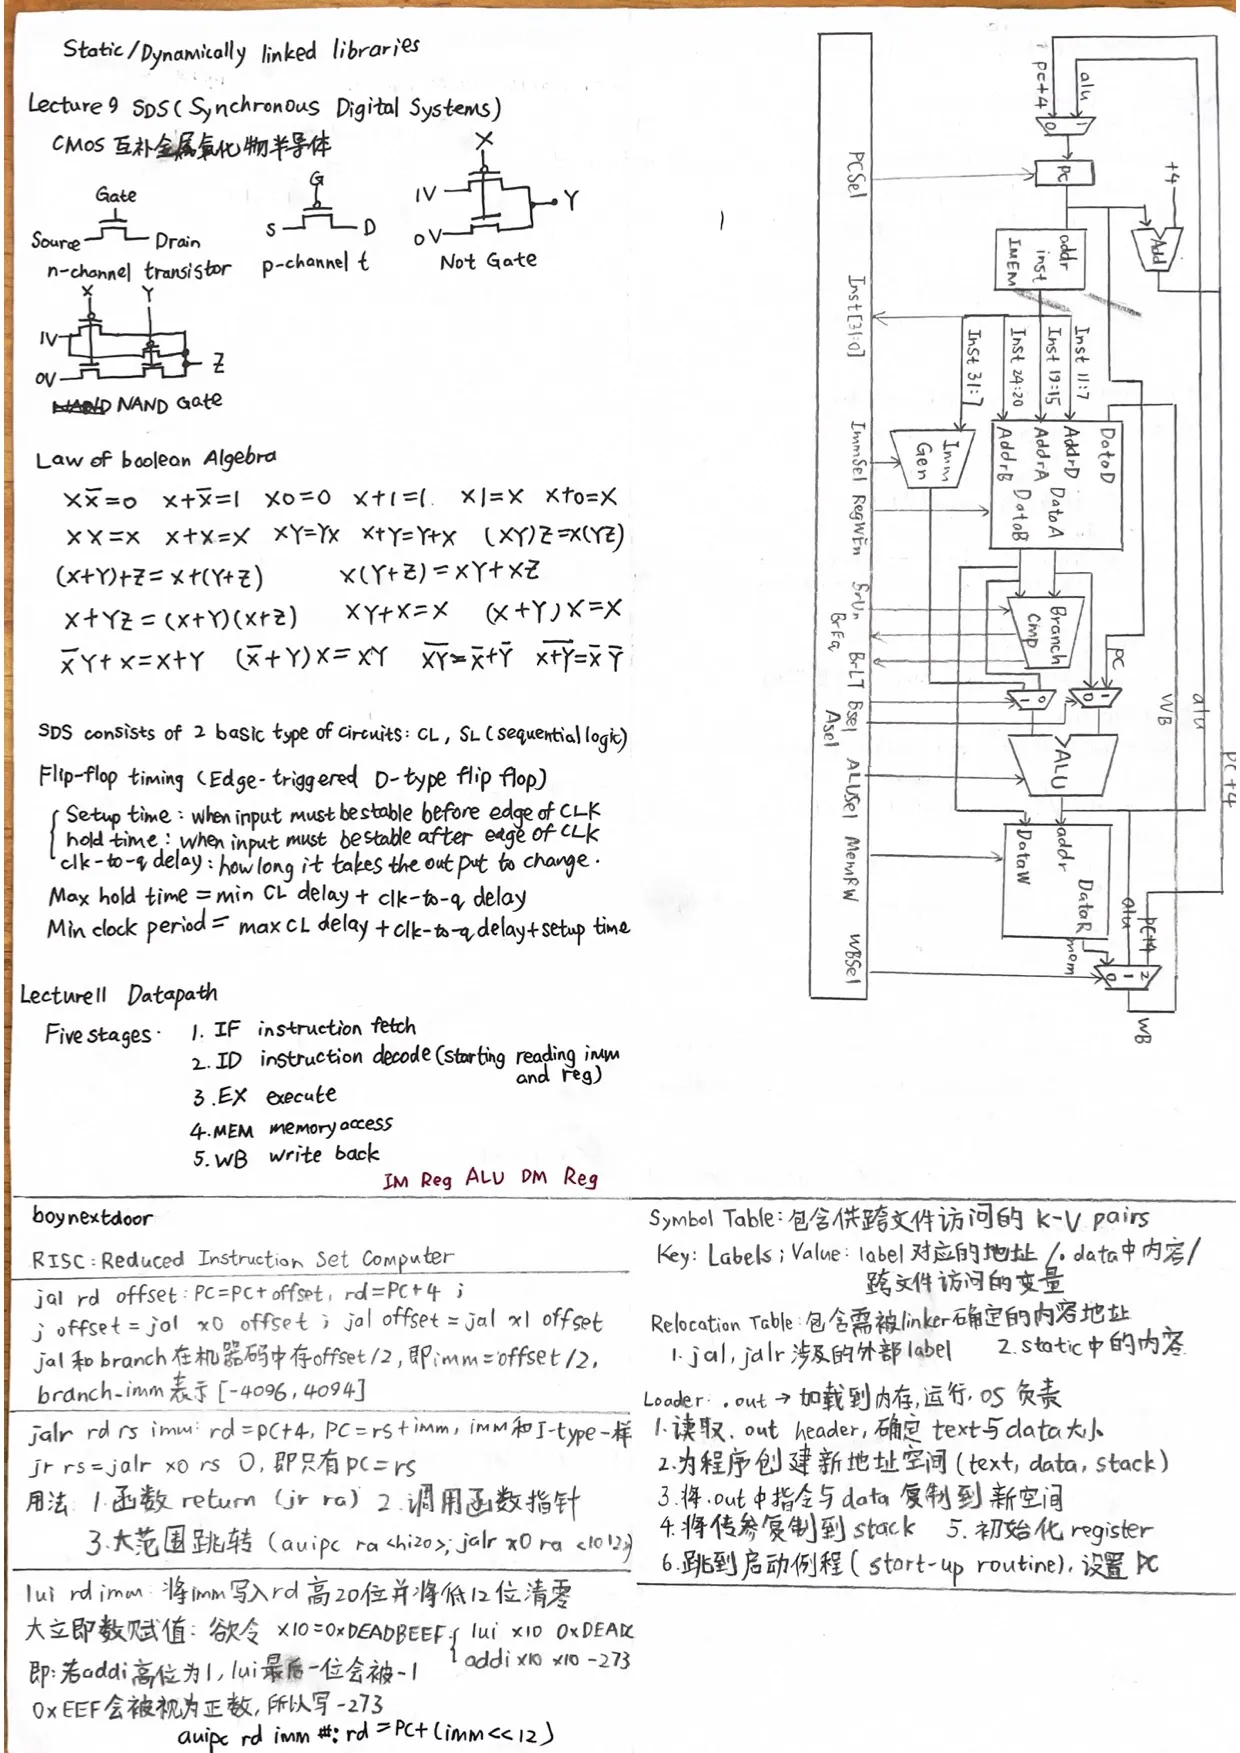 Static/Dynamically linked libraries
Lecture 9 SDS (Synchronous Digital Systems)
CMOS 互补金属氧化物半导体
Gate
Source Drain
n-channel transistor
G
S D
p-channel t
X
1V
0V
Y
Not Gate
X Y
1V
0V
Z
NAND Gate
Law of boolean Algebra
XX̅=0 X+X̅=1 X0=0 X+1=1. X1=X X+0=X
XX=X X+X=X XY=YX X+Y=Y+X (XY)Z=X(YZ)
(X+Y)+Z=X+(Y+Z) X(Y+Z)=XY+XZ
X+YZ=(X+Y)(X+Z) XY+X=X (X+Y)X=X
X̅Y+X=X+Y (X̅+Y)X=XY X̅Y̅=X̅+Y̅ X̅+̅Y̅=X̅ Y̅
SDS consists of 2 basic type of circuits: CL, SL (sequential logic)
Flip-flop timing (Edge-triggered D-type flip flop)
Setup time: when input must be stable before edge of CLK
hold time: when input must be stable after edge of CLK
clk-to-q delay: how long it takes the output to change.
Max hold time = min CL delay + clk-to-q delay
Min clock period = max CL delay + clk-to-q delay + setup time
Lecture 11 Datapath
Five stages.
1. IF instruction fetch
2. ID instruction decode (starting reading imm
and reg)
3. EX execute
4. MEM memory access
5. WB write back
IM Reg ALU DM Reg
PCSel
Inst[31:0]
ImmSel
RegWEn
BrUn
BrEq
BrLT
Bsel
Asel
ALUSel
MemRW
WBSel
pc+4
alu
0 1
PC
+4
Add
addr
inst
IMEM
Inst 11:7
Inst 19:15
Inst 24:20
Inst 31:7
Imm
Gen
DataD
AddrD
AddrA DataA
AddrB DataB
Branch
Cmp
PC
1 0
0 1
ALU
WB
alu
pc+4
addr
DataW
DataR
mem
alu
pc+4
0 1 2
WB
boynextdoor
RISC: Reduced Instruction Set Computer
jal rd offset: PC=PC+offset, rd=PC+4 ;
j offset = jal x0 offset ; jal offset = jal x1 offset
jal 和 branch 在机器码中存offset/2, 即imm=offset/2,
branch-imm 表示 [-4096, 4094]
jalr rd rs imm: rd=PC+4, PC=rs+imm, imm和I-type一样
jr rs=jalr x0 rs 0, 即只有pc=rs
用法 1.函数 return (jr ra) 2.调用函数指针
3.大范围跳转 (auipc ra <hi20>; jalr x0 ra <lo12>)
lui rd imm: 将imm写入rd高20位并将低12位清零
大立即数赋值: 欲令 x10=0xDEADBEEF { lui x10 0xDEADC
addi x10 x10 -273
即:若addi高位为1, lui最后一位会被-1
0xEEF会被视为正数, 所以写-273
auipc rd imm #: rd=PC+(imm<<12)
Symbol Table: 包含供跨文件访问的 K-V pairs
Key: Labels ; Value: label对应的地址/.data中内容/
跨文件访问的变量
Relocation Table: 包含需被linker确定的内容地址
1. jal, jalr 涉及的外部label 2. static中的内容
Loader: .out → 加载到内存,运行,OS 负责
1.读取.out header, 确定 text与data大小
2.为程序创建新地址空间 (text, data, stack)
3.将.out中指令与data复制到新空间
4.将传参复制到stack 5.初始化register
6.跳到启动例程 (start-up routine), 设置PC